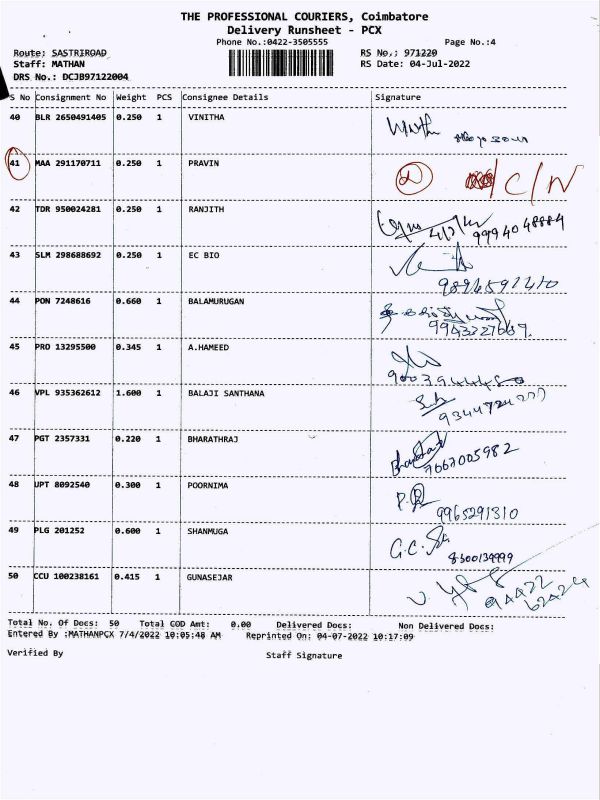 THE PROFESSIONAL COURIERS, Coimbatore
Delivery Runsheet - PCX
Phone No.:0422-3505555 Page No.:4
Route; SASTRIROAD RS No.; 971220
Staff: MATHAN RS Date: 04-Jul-2022
DRS No.: DCJB97122004
S No Consignment No Weight PCS Consignee Details Signature
40 BLR 2650491405 0.250 1 VINITHA
41 MAA 291170711 0.250 1 PRAVIN C/N
42 TDR 950024281 0.250 1 RANJITH
9994048884
43 SLM 298688692 0.250 1 EC BIO
44 PON 7248616 0.660 1 BALAMURUGAN
45 PRO 13295500 0.345 1 A.HAMEED
46 VPL 935362612 1.600 1 BALAJI SANTHANA
47 PGT 2357331 0.220 1 BHARATHRAJ
7667005982
48 UPT 8092540 0.300 1 POORNIMA
9965291310
49 PLG 201252 0.600 1 SHANMUGA
50 CCU 100238161 0.415 1 GUNASEJAR
94422
62424
Total No. Of Docs: 50 Total COD Amt: 0.00 Delivered Docs: Non Delivered Docs:
Entered By :MATHANPCX 7/4/2022 10:05:48 AM Reprinted On: 04-07-2022 10:17:09
Verified By Staff Signature